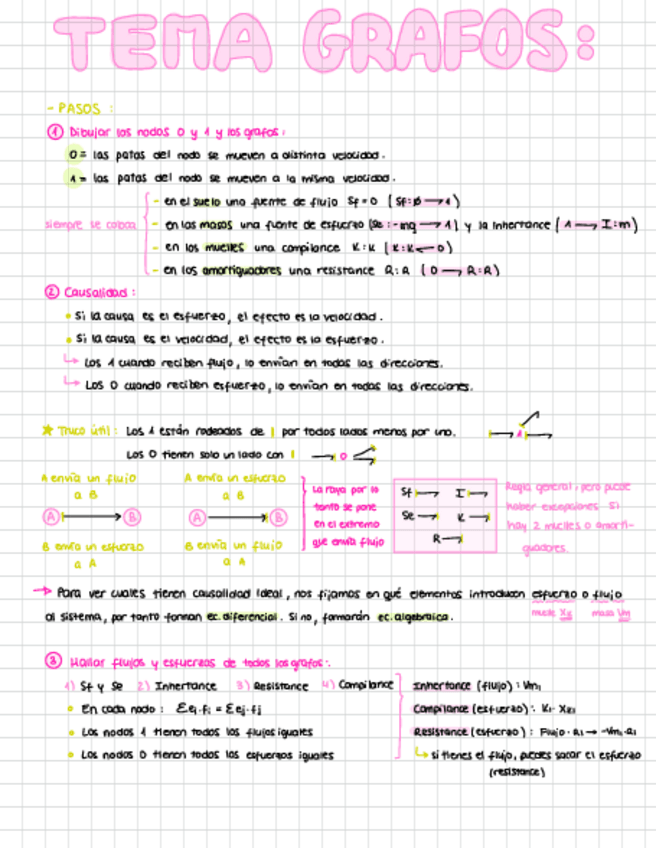 TEMA GRAFOS:
- PASOS :
① Dibujar los nodos 0 y 1 y los grafos:
0 = las patas del nodo se mueven a distinta velocidad.
1 = las patas del nodo se mueven a la misma velocidad.
siempre se coloca
- en el suelo una fuente de flujo Sf=0 (Sf:0 → 1)
- en las masas una fuente de esfuerzo (Se:-mg → 1) y la Inhertance (1 → I:m)
- en los muelles una compilance K:K (K:K ← 0)
- en los amortiguadores una resistance R:R (0 → R:R)
② Causalidad:
• Si la causa es el esfuerzo, el efecto es la velocidad.
• Si la causa es el velocidad, el efecto es la esfuerzo.
↳ Los 1 cuando reciben flujo, lo envían en todas las direcciones.
↳ Los 0 cuando reciben esfuerzo, lo envían en todas las direcciones.
★ Truco útil: Los 1 están rodeados de | por todos lados menos por uno.
1
Los 0 tienen solo un lado con |
0
A envía un flujo a B
A B
B envía un esfuerzo a A
A envía un esfuerzo a B
A B
B envía un flujo a A
La raya por lo
tanto se pone
en el extremo
que envía flujo
Sf I
Se K
R
Regla general, pero puede
haber excepciones si
hay 2 muelles o amorti-
guadores.
→ Para ver cuales tienen causalidad ideal, nos fijamos en qué elementos introducen esfuerzo o flujo
muelle Xk masa Vm
al sistema, por tanto forman ec.diferencial. Si no, formarán ec.algebraica.
③ Hallar flujos y esfuerzos de todos los grafos:
1) Sf y Se 2) Inhertance 3) Resistance 4) Compilance
• En cada nodo: Σei·fi = Σej·fj
• Los nodos 1 tienen todos los flujos iguales
• Los nodos 0 tienen todos los esfuerzos iguales
Inhertance (flujo): Vm1
Compilance (esfuerzo): K1·XK1
Resistance (esfuerzo): Flujo·R1 → -Vm1·R1
↳ si tienes el flujo, puedes sacar el esfuerzo
(resistance)